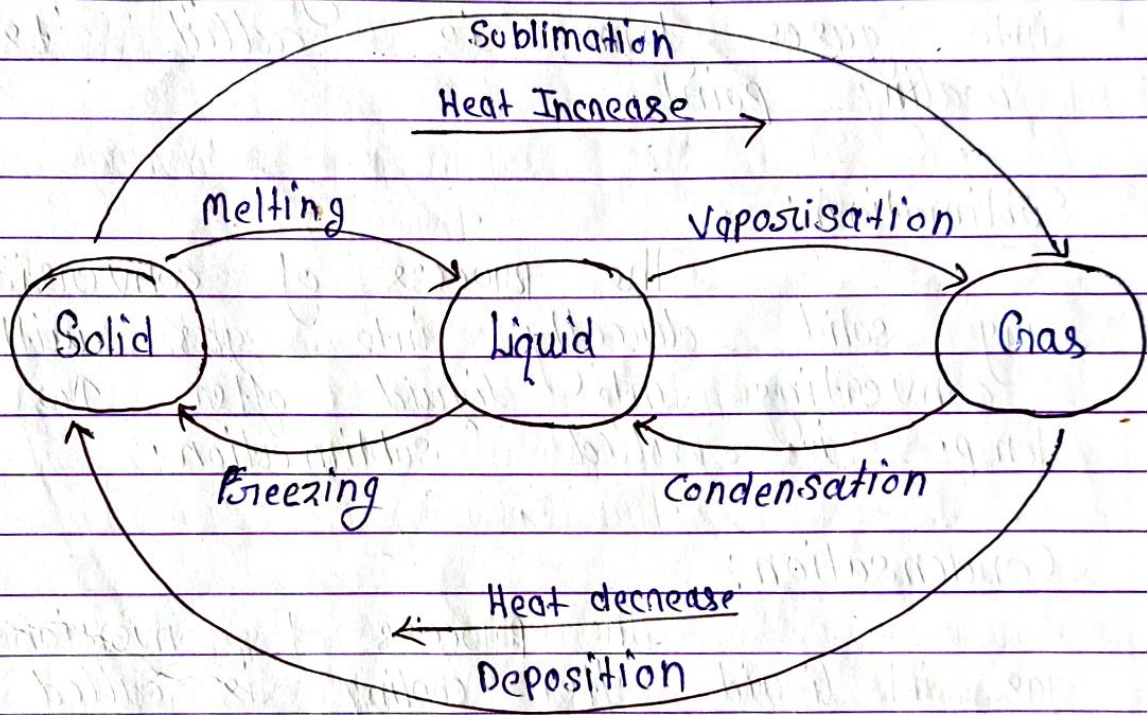 Sublimation
Heat Increase
Melting
Vaporisation
Solid
Liquid
Gas
Freezing
Condensation
Heat decrease
Deposition